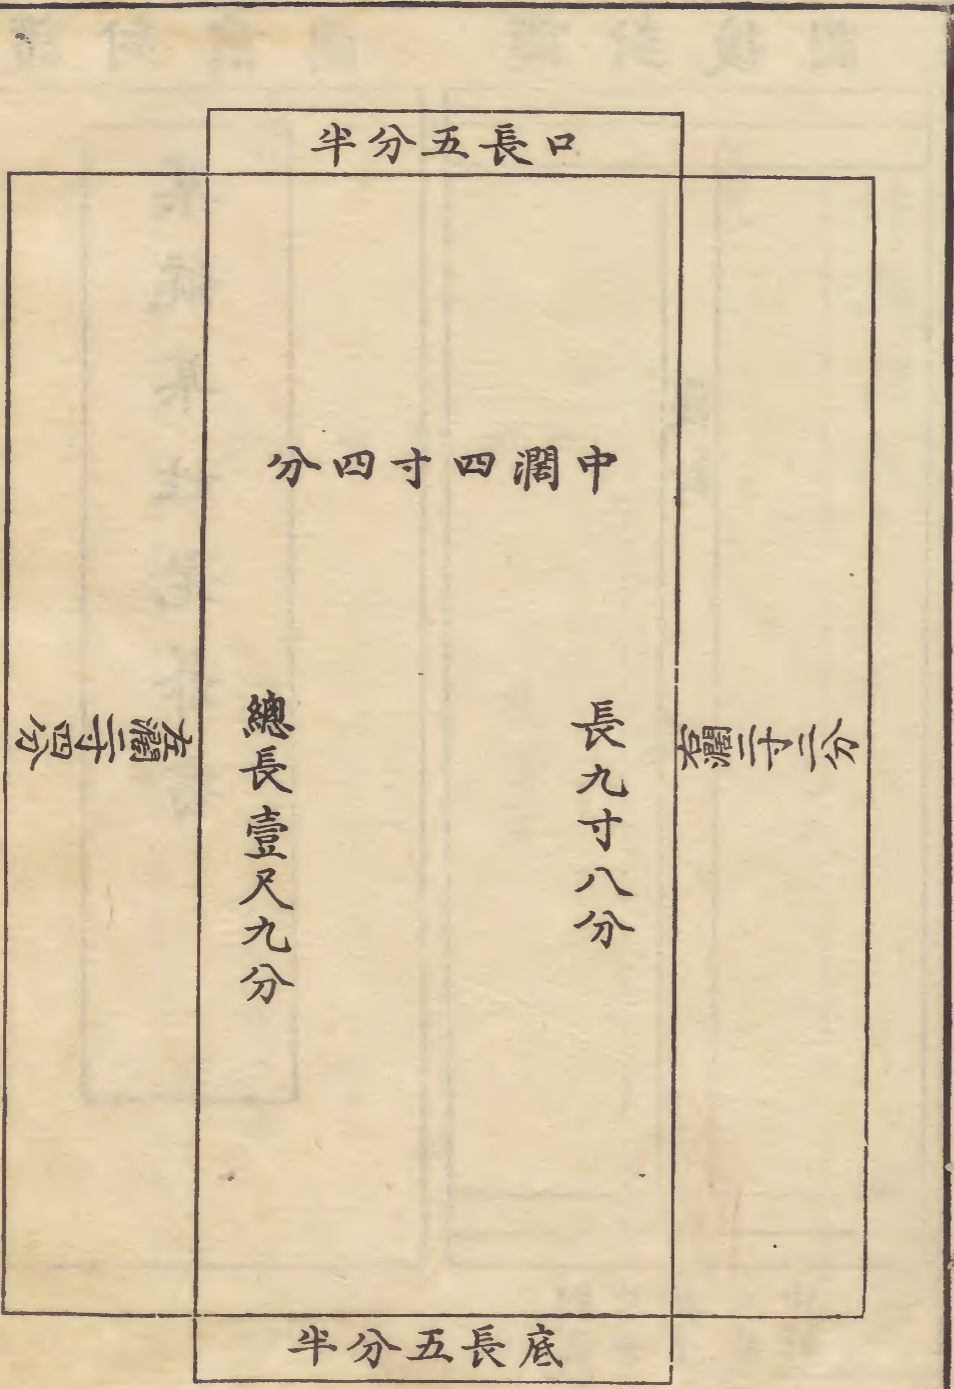 口長五分半
中濶四寸四分
右濶二寸二分
長九寸八分
總長壹尺九分
左濶二寸四分
底長五分半